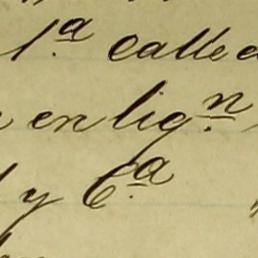 1.ª calle d
en lig.n
y C.ª